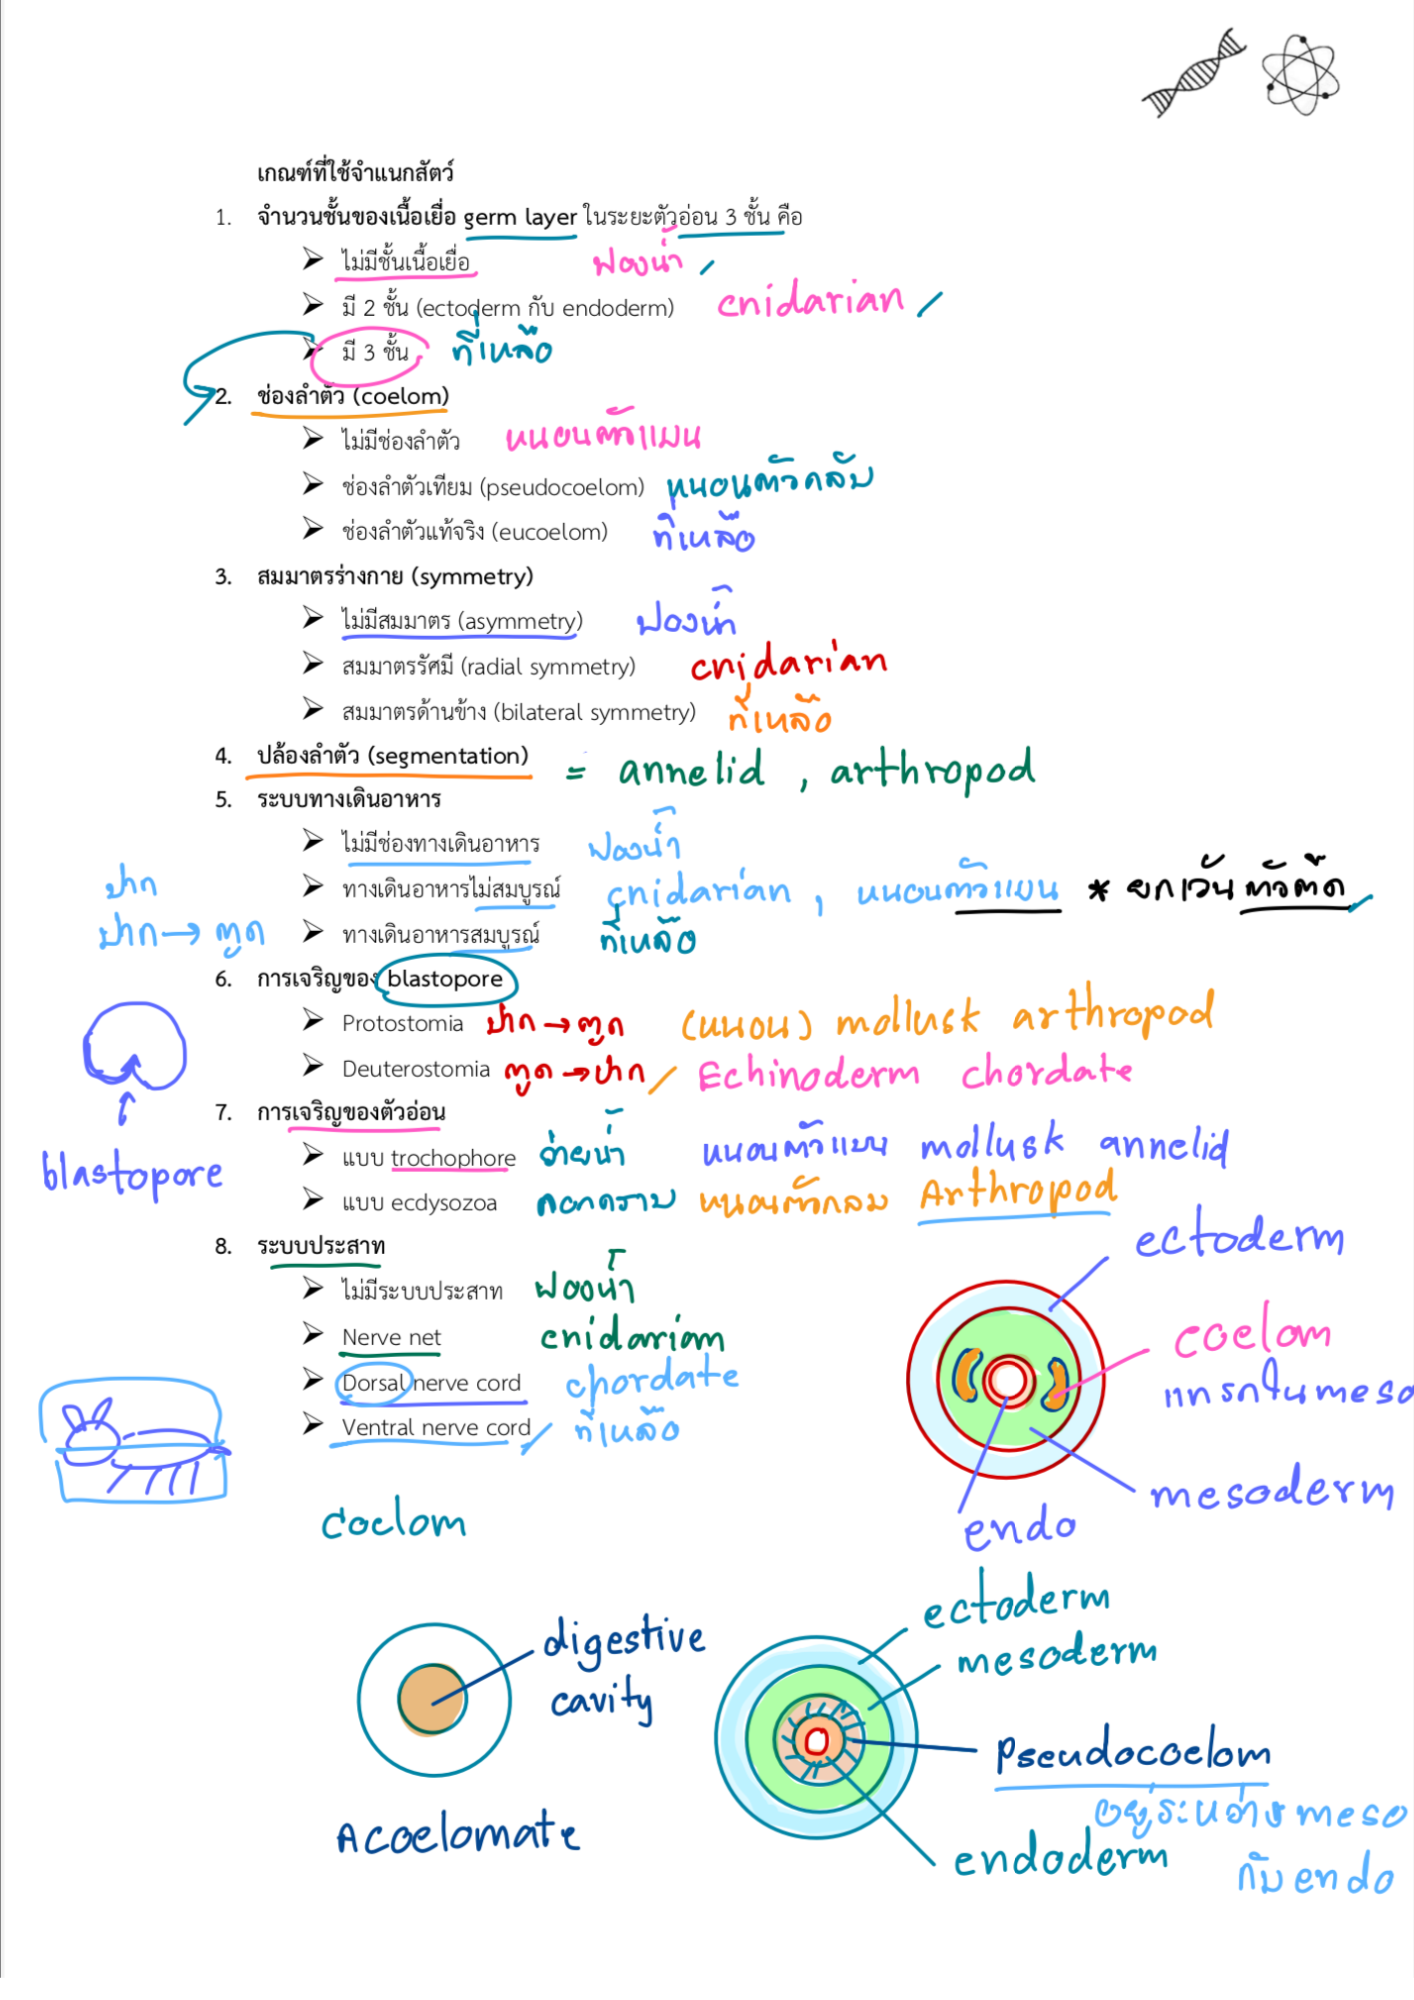 เกณฑ์ที่ใช้จำแนกสัตว์
1. จำนวนชั้นของเนื้อเยื่อ germ layer ในระยะตัวอ่อน 3 ชั้น คือ
➢ ไม่มีชั้นเนื้อเยื่อ ฟองน้ำ
➢ มี 2 ชั้น (ectoderm กับ endoderm) cnidarian
➢ มี 3 ชั้น ที่เหลือ
2. ช่องลำตัว (coelom)
➢ ไม่มีช่องลำตัว หนอนตัวแบน
➢ ช่องลำตัวเทียม (pseudocoelom) หนอนตัวกลม
➢ ช่องลำตัวแท้จริง (eucoelom) ที่เหลือ
3. สมมาตรร่างกาย (symmetry)
➢ ไม่มีสมมาตร (asymmetry) ฟองน้ำ
➢ สมมาตรรัศมี (radial symmetry) cnidarian
➢ สมมาตรด้านข้าง (bilateral symmetry) ที่เหลือ
4. ปล้องลำตัว (segmentation) = annelid , arthropod
5. ระบบทางเดินอาหาร
➢ ไม่มีช่องทางเดินอาหาร ฟองน้ำ
ปาก
➢ ทางเดินอาหารไม่สมบูรณ์ cnidarian , หนอนตัวแบน * ยกเว้น ตัวตืด
ปาก → ตูด
➢ ทางเดินอาหารสมบูรณ์ ที่เหลือ
6. การเจริญของ blastopore
➢ Protostomia ปาก → ตูด (หนอน) mollusk arthropod
➢ Deuterostomia ตูด → ปาก Echinoderm chordate
7. การเจริญของตัวอ่อน
blastopore
➢ แบบ trochophore ว่ายน้ำ หนอนตัวแบน mollusk annelid
➢ แบบ ecdysozoa ลอกคราบ หนอนตัวกลม Arthropod
8. ระบบประสาท
➢ ไม่มีระบบประสาท ฟองน้ำ
➢ Nerve net cnidarian
➢ Dorsal nerve cord chordate
➢ Ventral nerve cord ที่เหลือ
ectoderm
coelom
แทรกในmeso
mesoderm
endo
coelom
digestive
cavity
Acoelomate
ectoderm
mesoderm
Pseudocoelom
อยู่ระหว่าง meso
กับ endo
endoderm